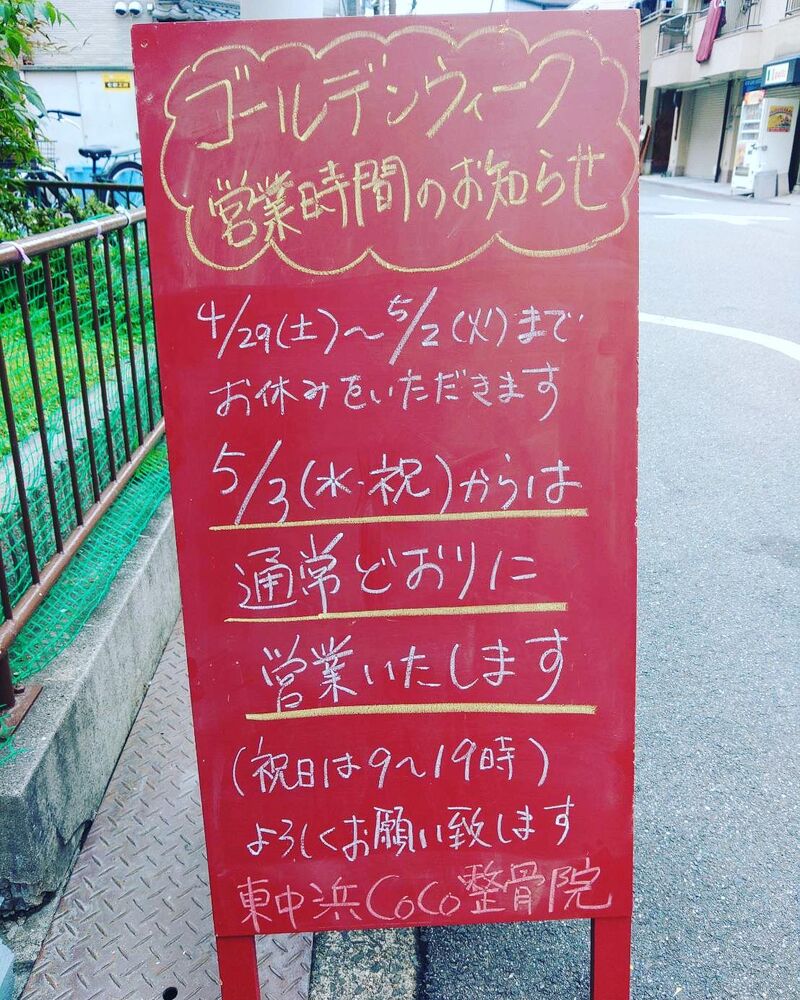 ゴールデンウィーク
営業時間のお知らせ
4/29(土)～5/2(火)まで
お休みをいただきます
5/3(水・祝)からは
通常どおりに
営業いたします
(祝日は9～19時)
よろしくお願い致します
東中浜CoCo整骨院